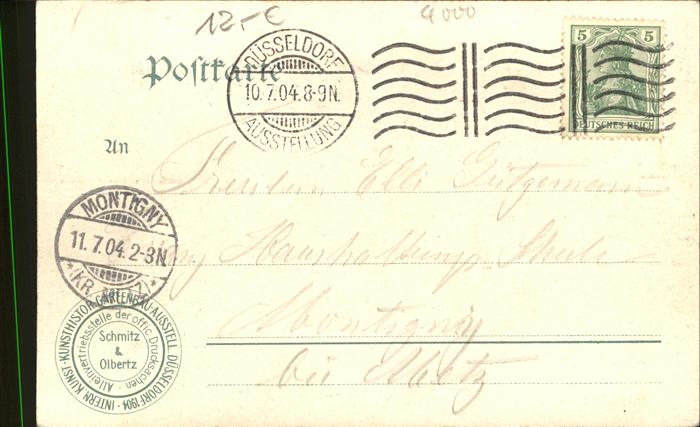 12.-€
4000
Postkarte
DÜSSELDORF
10.7.04.8-9N.
AUSSTELLUNG
5 5
DEUTSCHES REICH
An
Fräulein Elli Gützemann
Haushaltungs-Schule
Montigny
bei Metz
MONTIGNY
11.7.04.2-3N
*(KR. METZ)*
INTERN KUNST-KUNSTHISTOR. GARTENBAU-AUSSTELL. DÜSSELDORF 1904
Alleinvertriebsstelle der offic. Drucksachen
Schmitz
&
Olbertz